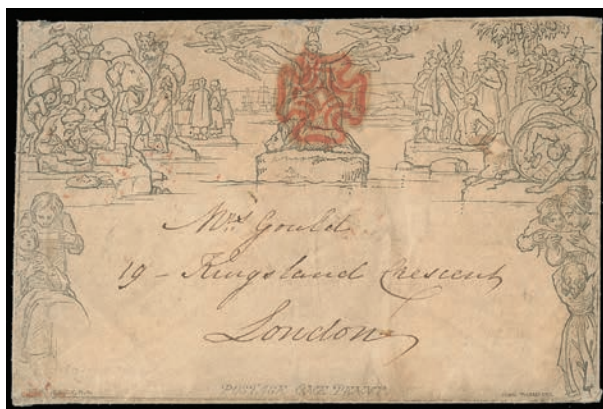 Mrs Gould
19 - Kingsland Crescent
London
POSTAGE ONE PENNY